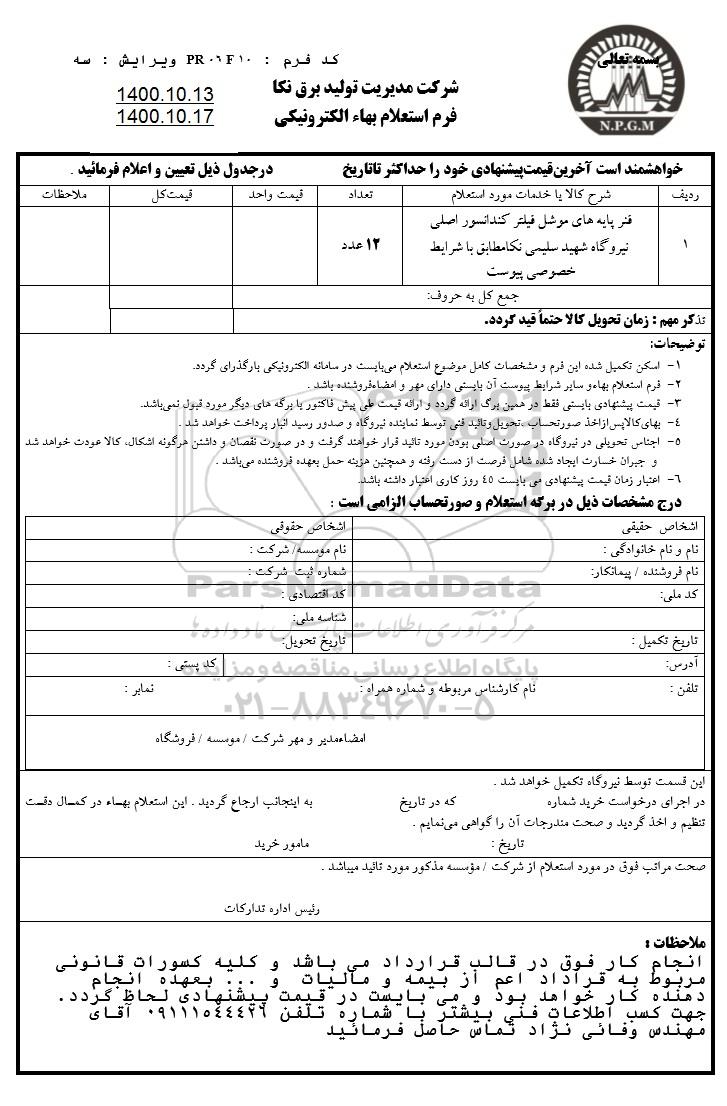 بسمه تعالی
N.P.G.M
کد فرم : PR ۰۶ F ۱۰ ویرایش : سه
شرکت مدیریت تولید برق نکا
فرم استعلام بهاء الکترونیکی
1400.10.13
1400.10.17
خواهشمند است آخرین‌قیمت‌پیشنهادی خود را حداکثر تاتاریخ درجدول ذیل تعیین و اعلام فرمائید .
ردیف شرح کالا یا خدمات مورد استعلام تعداد قیمت واحد قیمت‌کل ملاحظات
۱ فنر پایه های موشل فیلتر کندانسور اصلی
نیروگاه شهید سلیمی نکامطابق با شرایط ۱۲ عدد
خصوصی پیوست
جمع کل به حروف:
تذکر مهم : زمان تحویل کالا حتماً قید گردد.
توضیحات:
۱- اسکن تکمیل شده این فرم و مشخصات کامل موضوع استعلام می‌بایست در سامانه الکترونیکی بارگذرای گردد.
۲- فرم استعلام بهاءو سایر شرایط پیوست آن بایستی دارای مهر و امضاءفروشنده باشد .
۳- قیمت پیشنهادی بایستی فقط در همین برگ ارائه گردد و ارائه قیمت طی پیش فاکتور یا برگه های دیگر مورد قبول نمی‌باشد.
۴- بهای‌کالاپس‌ازاخذ صورتحساب ،تحویل‌وتائید فنی توسط نماینده نیروگاه و صدور رسید انبار پرداخت خواهد شد .
۵- اجناس تحویلی در نیروگاه در صورت اصلی بودن مورد تائید قرار خواهند گرفت و در صورت نقصان و داشتن هرگونه اشکال، کالا عودت خواهد شد
و جبران خسارت ایجاد شده شامل فرصت از دست رفته و همچنین هزینه حمل بعهده فروشنده می‌باشد .
۶- اعتبار زمان قیمت پیشنهادی می بایست ٤٥ روز کاری اعتبار داشته باشد.
درج مشخصات ذیل در برگه استعلام و صورتحساب الزامی است :
اشخاص حقیقی اشخاص حقوقی
نام و نام خانوادگی : نام موسسه/ شرکت :
نام فروشنده / پیمانکار: شماره ثبت شرکت :
کد ملی: کد اقتصادی :
شناسه ملی:
تاریخ تکمیل : تاریخ تحویل:
آدرس: کد پستی :
تلفن : نام کارشناس مربوطه و شماره همراه : نمابر :
امضاءمدیر و مهر شرکت / موسسه / فروشگاه
ParsNamadData
مرکز فرآوری اطلاعات پارس نماد داده ها
پایگاه اطلاع رسانی مناقصه و مزایده
۰۲۱-۸۸۳۴۹۶۷۰-۵
این قسمت توسط نیروگاه تکمیل خواهد شد .
در اجرای درخواست خرید شماره که در تاریخ به اینجانب ارجاع گردید . این استعلام بهـاء در کمـال دقـت
تنظیم و اخذ گردید و صحت مندرجات آن را گواهی می‌نمایم .
تاریخ : مامور خرید
صحت مراتب فوق در مورد استعلام از شرکت / مؤسسه مذکور مورد تائید میباشد .
رئیس اداره تدارکات
ملاحظات :
انجام کار فوق در قالب قرارداد می باشد و کلیه کسورات قانونی
مربوط به قراداد اعم از بیمه و مالیات و ... بعهده انجام
دهنده کار خواهد بود و می بایست در قیمت پیشنهادی لحاظ گردد.
جهت کسب اطلاعات فنی بیشتر با شماره تلفن ۰۹۱۱۱۵٤٤٤۲٦ آقای
مهندس وفائی نژاد تماس حاصل فرمائید